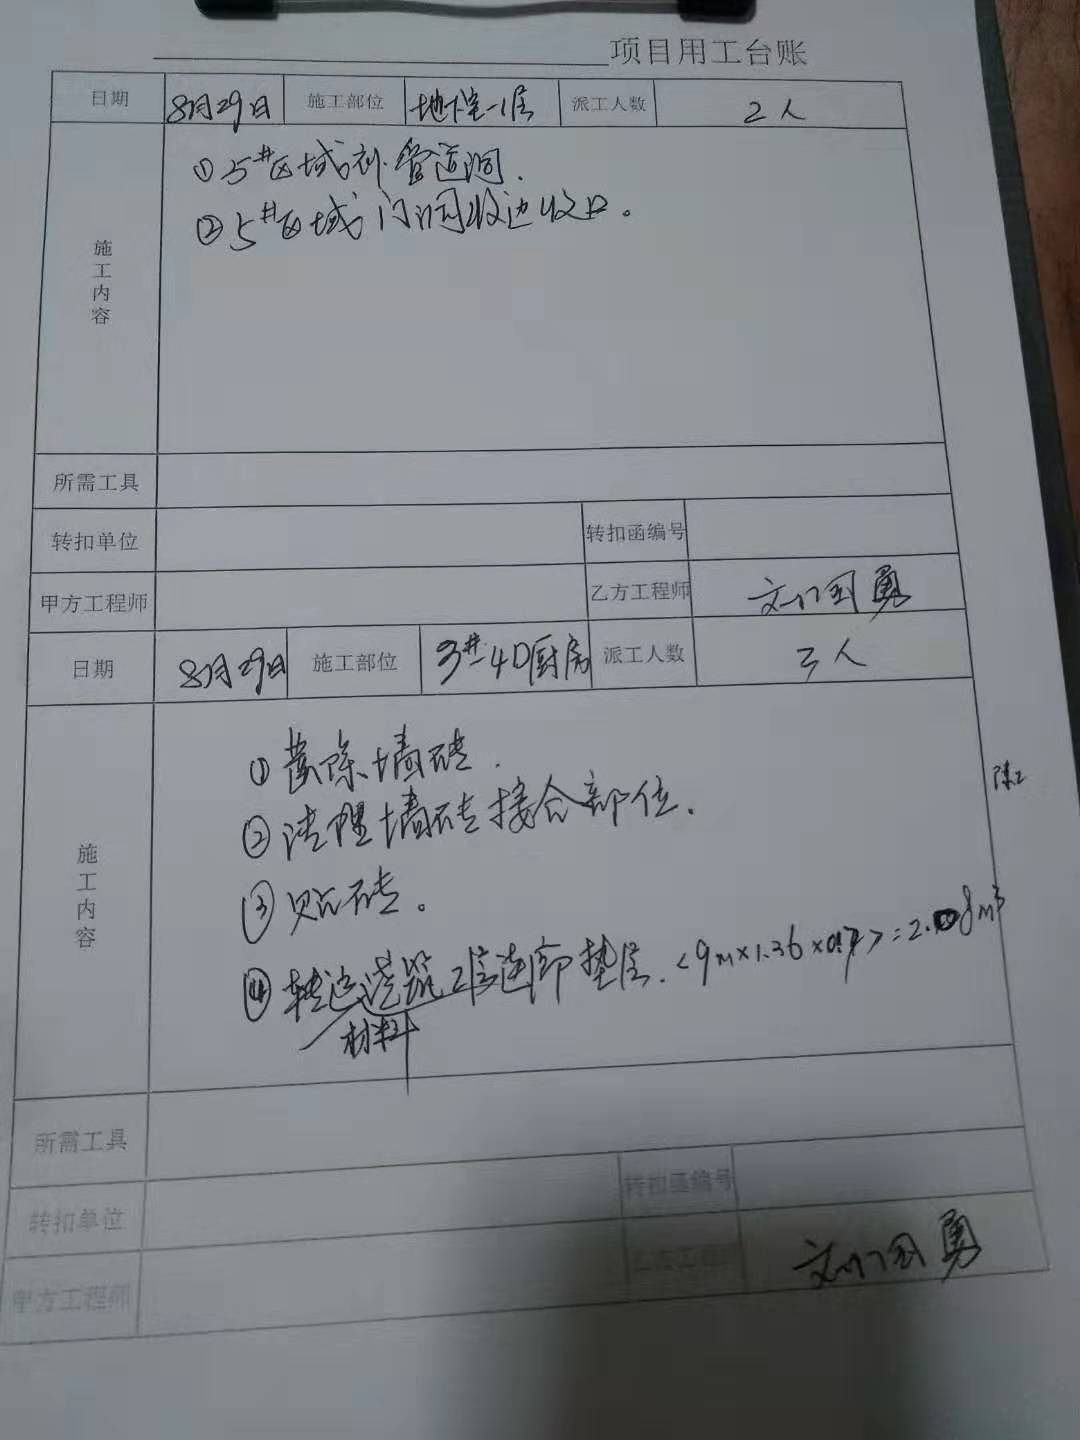 项目用工台账
日期 8月29日 施工部位 地下室-1层 派工人数 2人
施工内容
①5#区域补管道洞.
②5#区域门洞收边收口。
所需工具
转扣单位 转扣函编号
甲方工程师 乙方工程师 刘国勇
日期 8月29日 施工部位 3#-4D厨房 派工人数 3人
施工内容
①凿除墙砖.
②清理墙砖接合部位.
③贴砖。
④转运浇筑2层连廊垫层.<9m×1.36×0.17>=2.08m³
材料
所需工具
转扣单位 转扣函编号
甲方工程师 乙方工程师 刘国勇